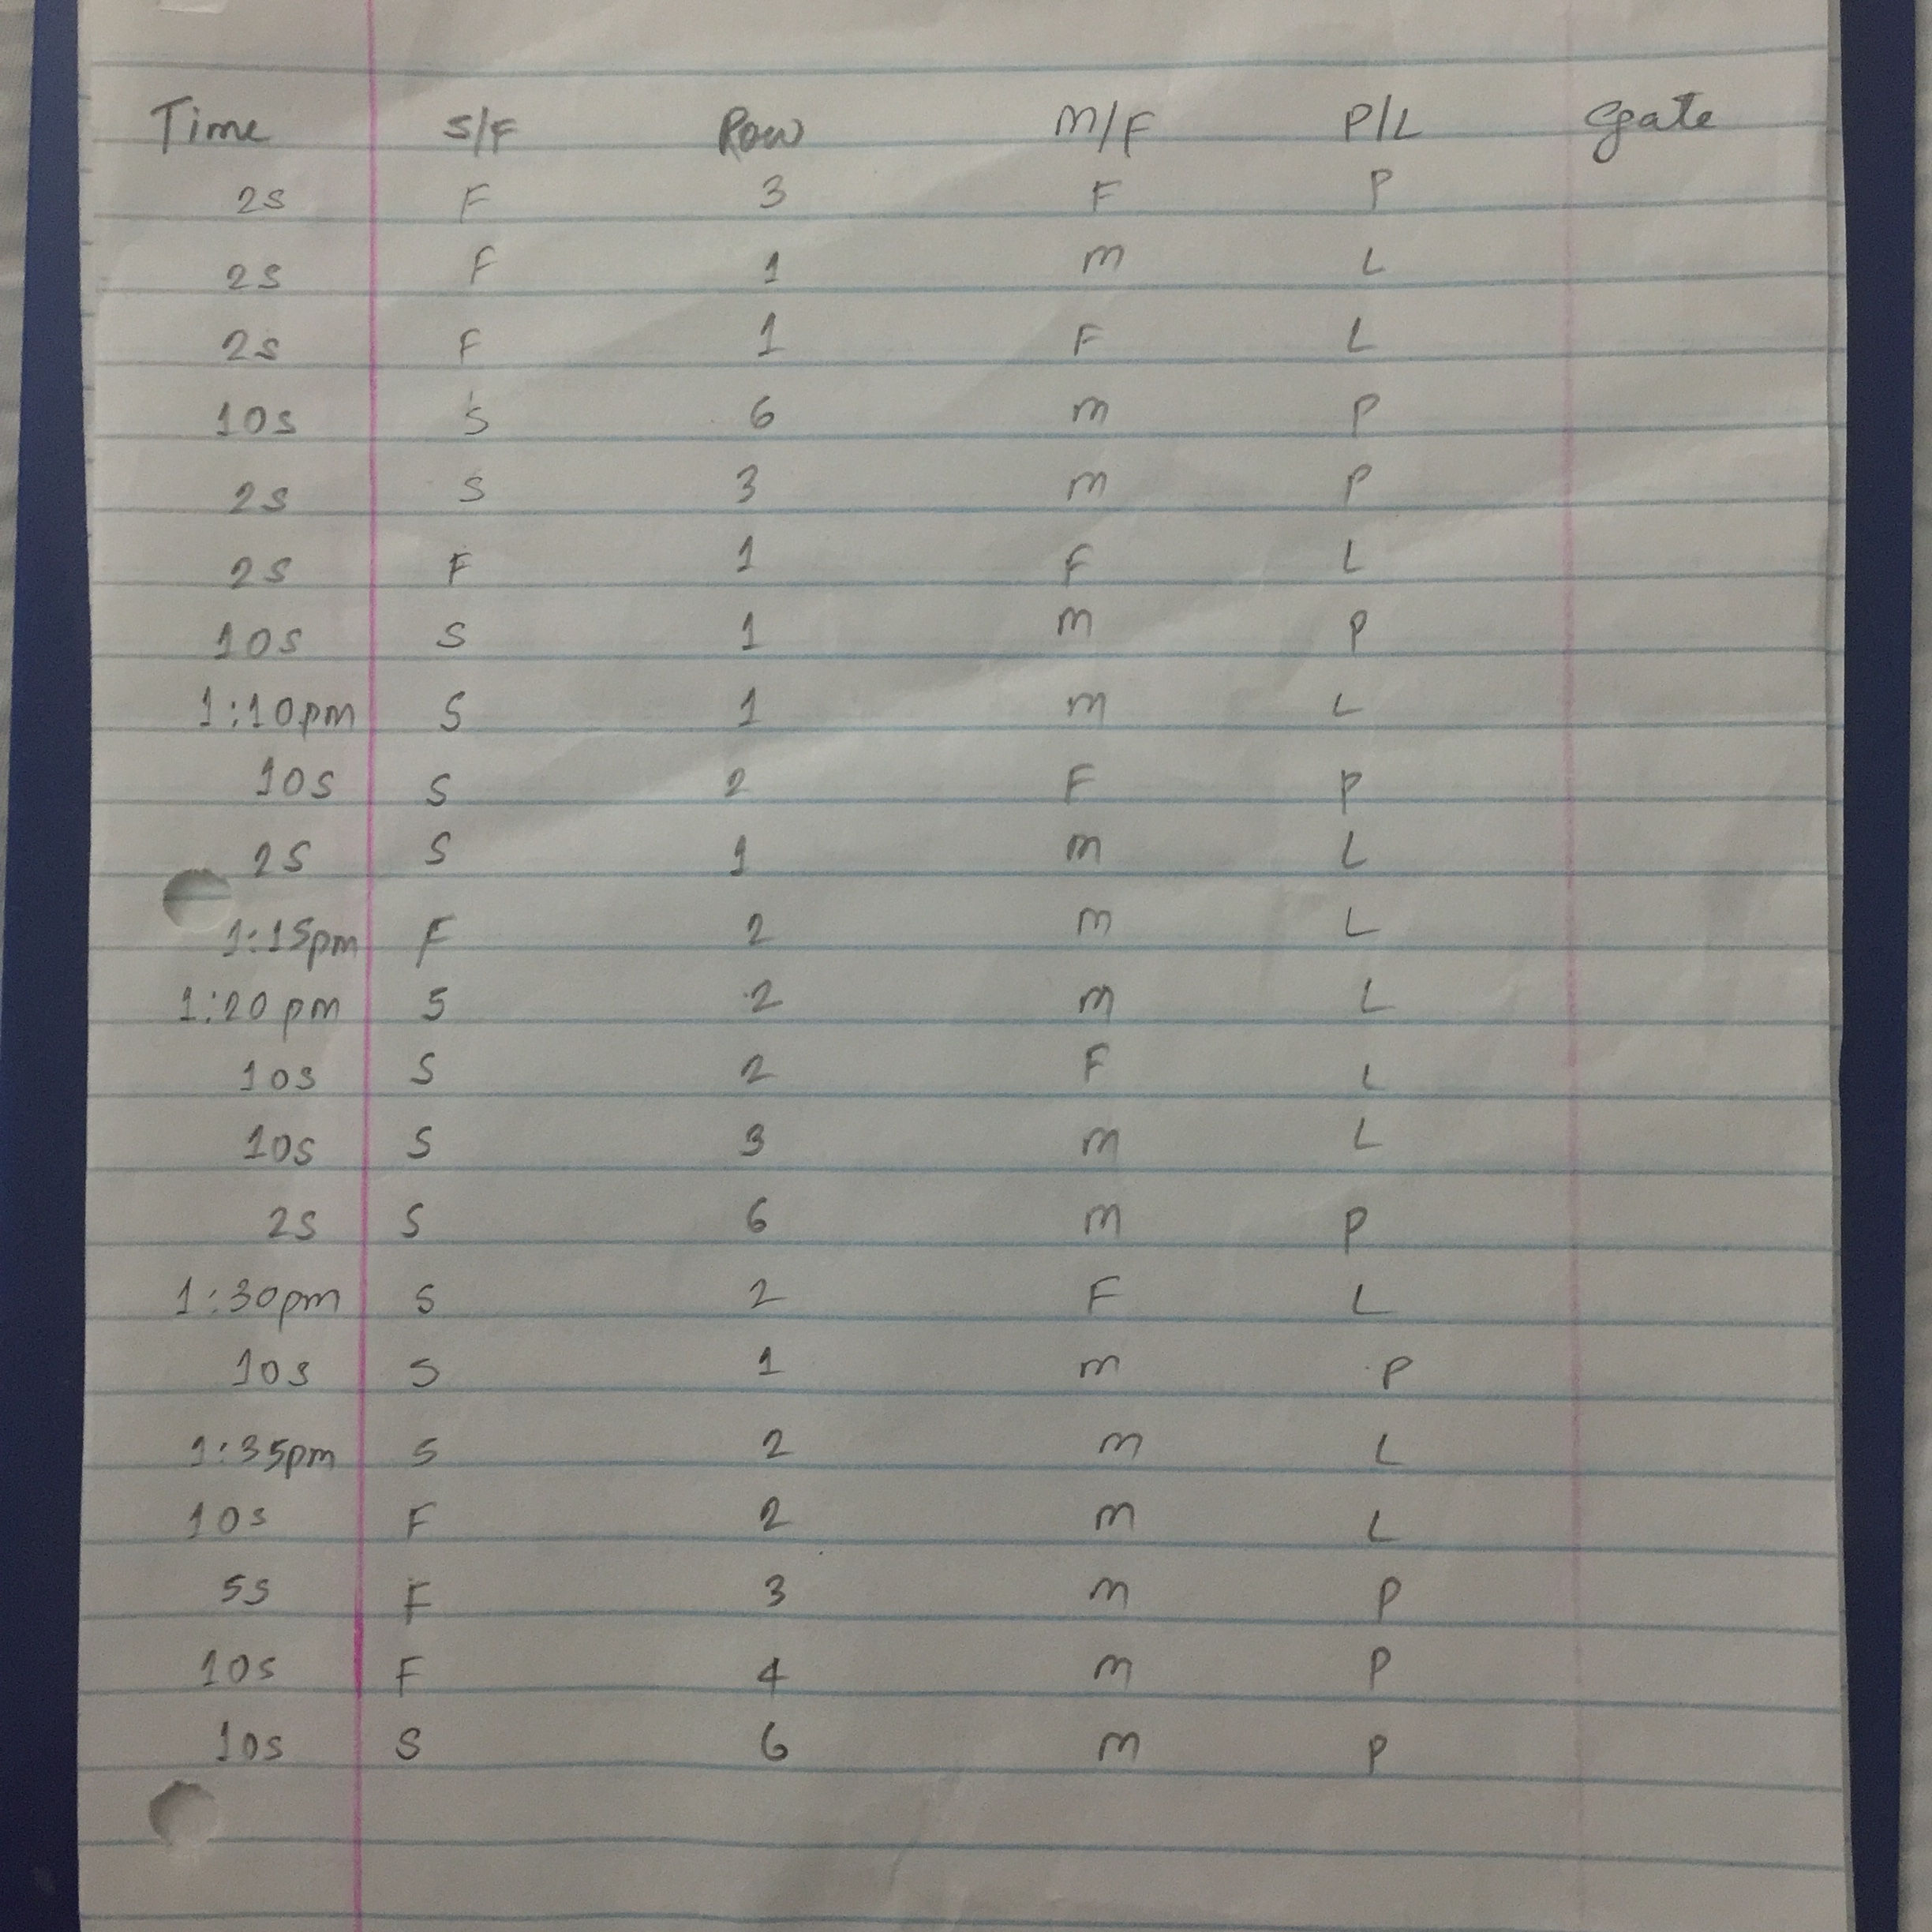 Time S/F Row M/F P/L Gate
2s F 3 F P
2s F 1 m L
2s F 1 F L
10s S 6 m P
2s S 3 m P
2s F 1 F L
10s S 1 m P
1:10pm S 1 m L
10s S 2 F P
2s S 1 m L
1:15pm F 2 m L
1:20pm S 2 m L
10s S 2 F L
10s S 3 m L
2s S 6 m P
1:30pm S 2 F L
10s S 1 m P
1:35pm S 2 m L
10s F 2 m L
5s F 3 m P
10s F 4 m P
10s S 6 m P